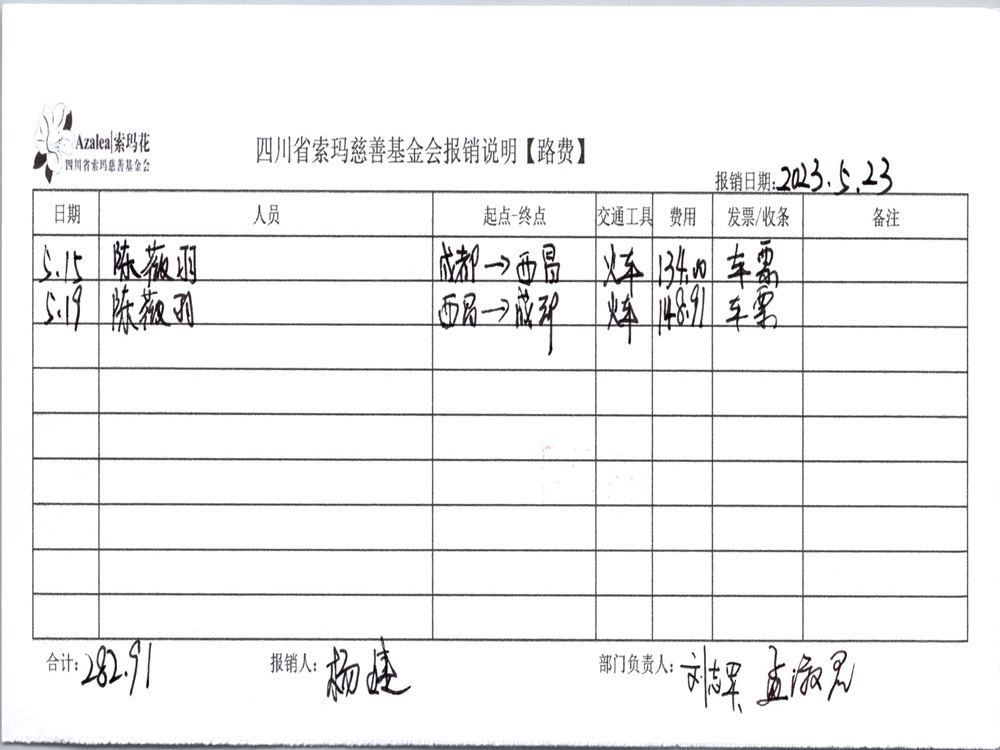 Azalea|索玛花
四川省索玛慈善基金会
四川省索玛慈善基金会报销说明【路费】
报销日期:2023.5.23
日期 人员 起点-终点 交通工具 费用 发票/收条 备注
5.15 陈薇羽 成都→西昌 火车 134.00 车票
5.19 陈薇羽 西昌→成都 火车 148.91 车票
合计:282.91 报销人:杨 部门负责人:刘志 孟